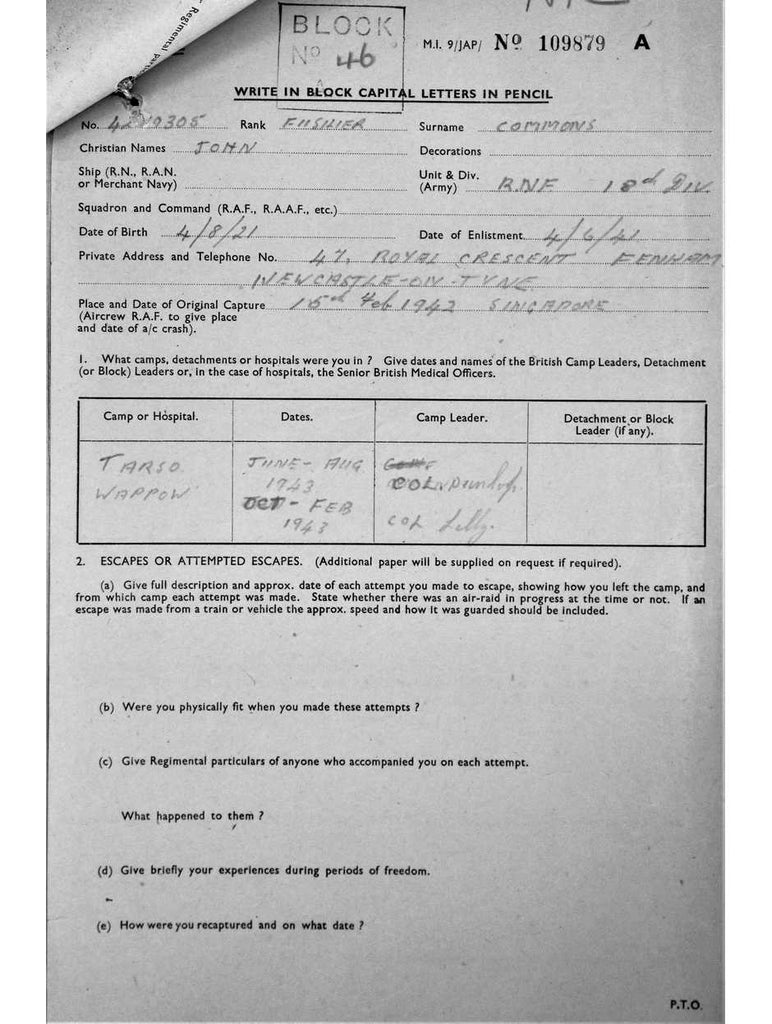 Regimental Parti
BLOCK
Nº 46
M.I. 9/JAP/ Nº 109879 A
WRITE IN BLOCK CAPITAL LETTERS IN PENCIL
No. Rank FUSILIER Surname COMMONS
Christian Names JOHN Decorations
Ship (R.N., R.A.N. or Merchant Navy) Unit & Div. (Army) RNF 18th DIV.
Squadron and Command (R.A.F., R.A.A.F., etc.)
Date of Birth 4/8/21 Date of Enlistment 4/6/41
Private Address and Telephone No. 47. ROYAL CRESCENT FENHAM
NEWCASTLE-ON-TYNE
Place and Date of Original Capture 15th Feb 1942 SINGAPORE
(Aircrew R.A.F. to give place
and date of a/c crash).
1. What camps, detachments or hospitals were you in ? Give dates and names of the British Camp Leaders, Detachment
(or Block) Leaders or, in the case of hospitals, the Senior British Medical Officers.
Camp or Hospital. Dates. Camp Leader. Detachment or Block Leader (if any).
TARSO JUNE- AUG
1943 COL Dunlop.
WAPPOW OCT - FEB
1943 COL Lilly.
2. ESCAPES OR ATTEMPTED ESCAPES. (Additional paper will be supplied on request if required).
(a) Give full description and approx. date of each attempt you made to escape, showing how you left the camp, and
from which camp each attempt was made. State whether there was an air-raid in progress at the time or not. If an
escape was made from a train or vehicle the approx. speed and how it was guarded should be included.
(b) Were you physically fit when you made these attempts ?
(c) Give Regimental particulars of anyone who accompanied you on each attempt.
What happened to them ?
(d) Give briefly your experiences during periods of freedom.
(e) How were you recaptured and on what date ?
P.T.O.